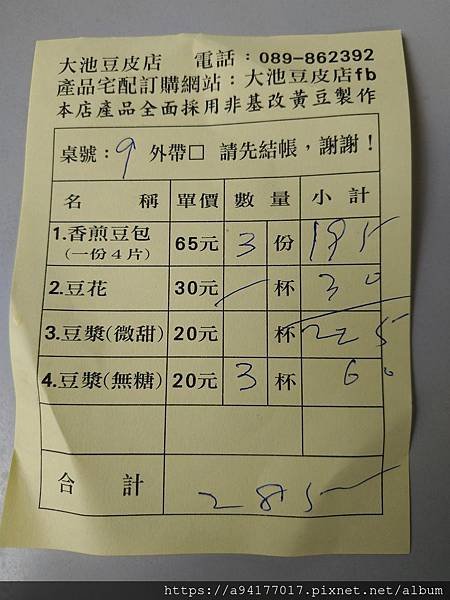 大池豆皮店 電話：089-862392
產品宅配訂購網站：大池豆皮店fb
本店產品全面採用非基改黃豆製作
桌號：9 外帶□ 請先結帳，謝謝！
名 稱 單價 數 量 小 計
1.香煎豆包 65元 3 份 195
(一份4片)
2.豆花 30元 一 杯 30
3.豆漿(微甜) 20元 杯 225
4.豆漿(無糖) 20元 3 杯 60
合 計 285
https://a94177017.pixnet.net/album